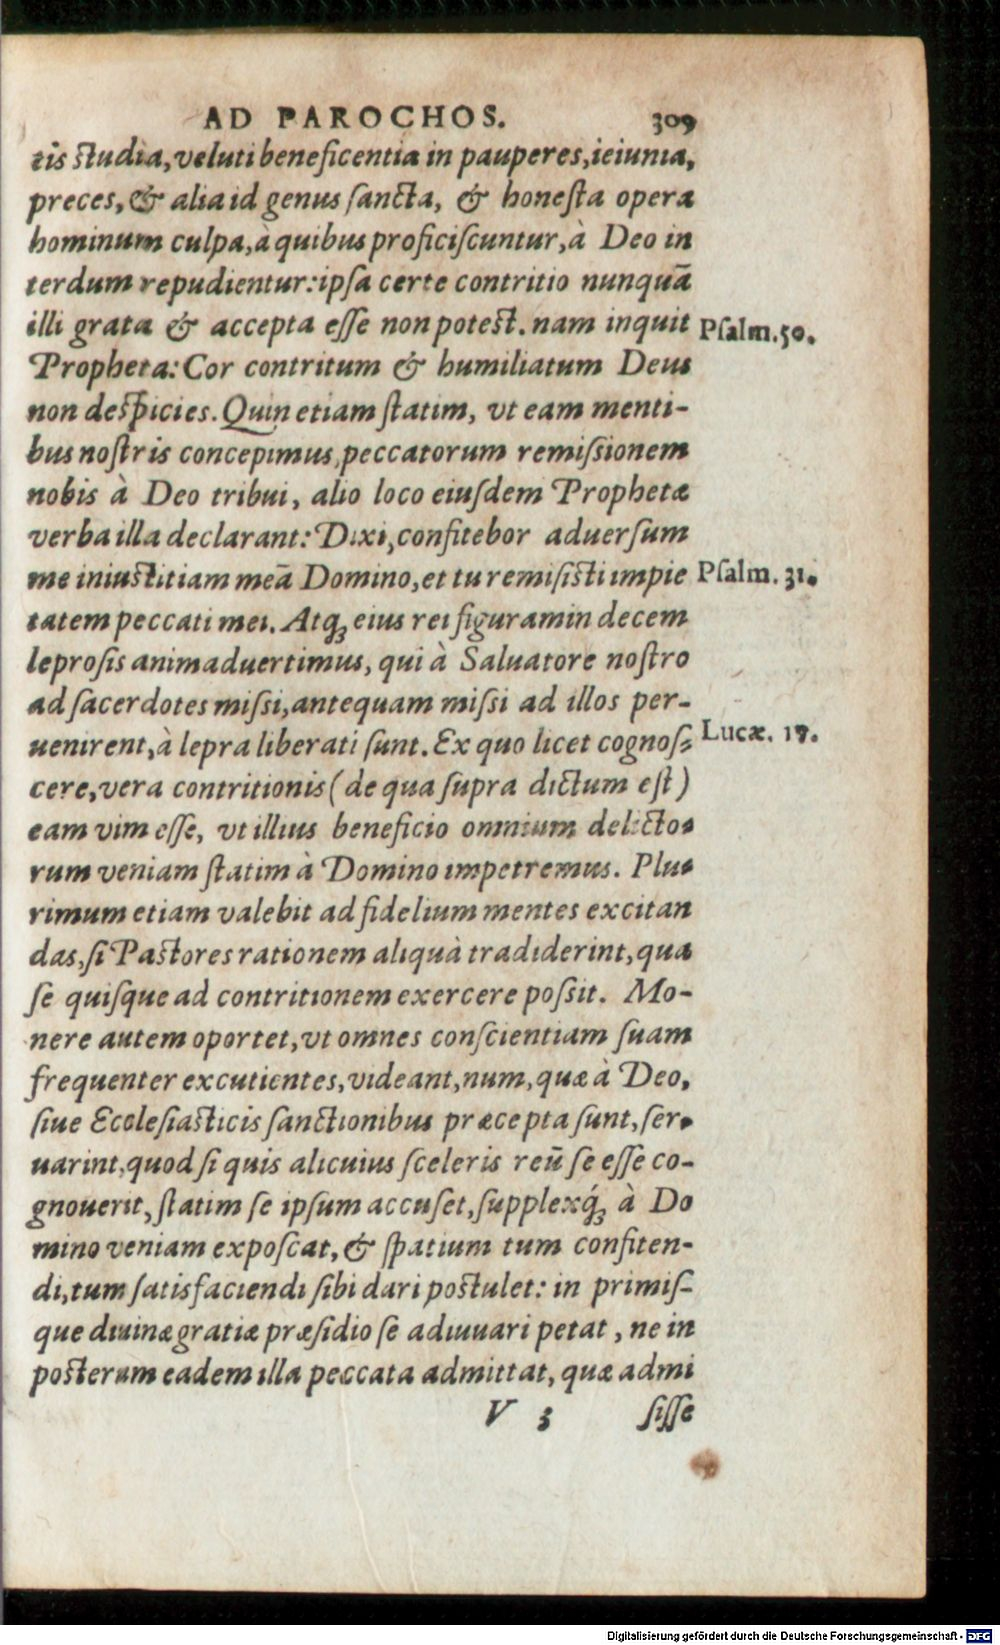 AD PAROCHOS. 309
tis ſtudia, veluti beneficentia in pauperes, ieiunia,
preces, & alia id genus ſancta, & honeſta opera
hominum culpa, à quibus proficiſcuntur, à Deo in
terdum repudientur: ipſa certe contritio nunquā
illi grata & accepta eſſe non poteſt. nam inquit
Psalm. 50.
Propheta: Cor contritum & humiliatum Deus
non deſpicies. Quin etiam ſtatim, vt eam menti-
bus noſtris concepimus, peccatorum remiſsionem
nobis à Deo tribui, alio loco eiuſdem Prophetæ
verba illa declarant: Dixi, confitebor aduerſum
me iniuſtitiam meā Domino, et tu remiſiſti impie
Pſalm. 31.
tatem peccati mei. Atq́ꝫ eius rei figuram in decem
leproſis animaduertimus, qui à Saluatore noſtro
ad ſacerdotes miſsi, antequam miſsi ad illos per-
uenirent, à lepra liberati ſunt. Ex quo licet cognoſ-
Lucæ. 17.
cere, vera contritionis (de qua ſupra dictum eſt)
eam vim eſſe, vt illius beneficio omnium delicto-
rum veniam ſtatim à Domino impetremus. Plu-
rimum etiam valebit ad fidelium mentes excitan
das, ſi Paſtores rationem aliquà tradiderint, qua
ſe quiſque ad contritionem exercere poſsit. Mo-
nere autem oportet, vt omnes conſcientiam ſuam
frequenter excutientes, videant, num, quæ à Deo,
ſiue Eccleſiaſticis ſanctionibus præcepta ſunt, ſer-
uarint, quod ſi quis alicuius ſceleris reū ſe eſſe co-
gnouerit, ſtatim ſe ipſum accuſet, ſupplexq́ꝫ à Do
mino veniam expoſcat, & ſpatium tum confiten-
di, tum ſatisfaciendi ſibi dari poſtulet: in primiſ-
que diuinæ gratiæ præſidio ſe adiuuari petat, ne in
poſterum eadem illa peccata admittat, quæ admi
V 3 ſiſſe
Digitalisierung gefördert durch die Deutsche Forschungsgemeinschaft - DFG